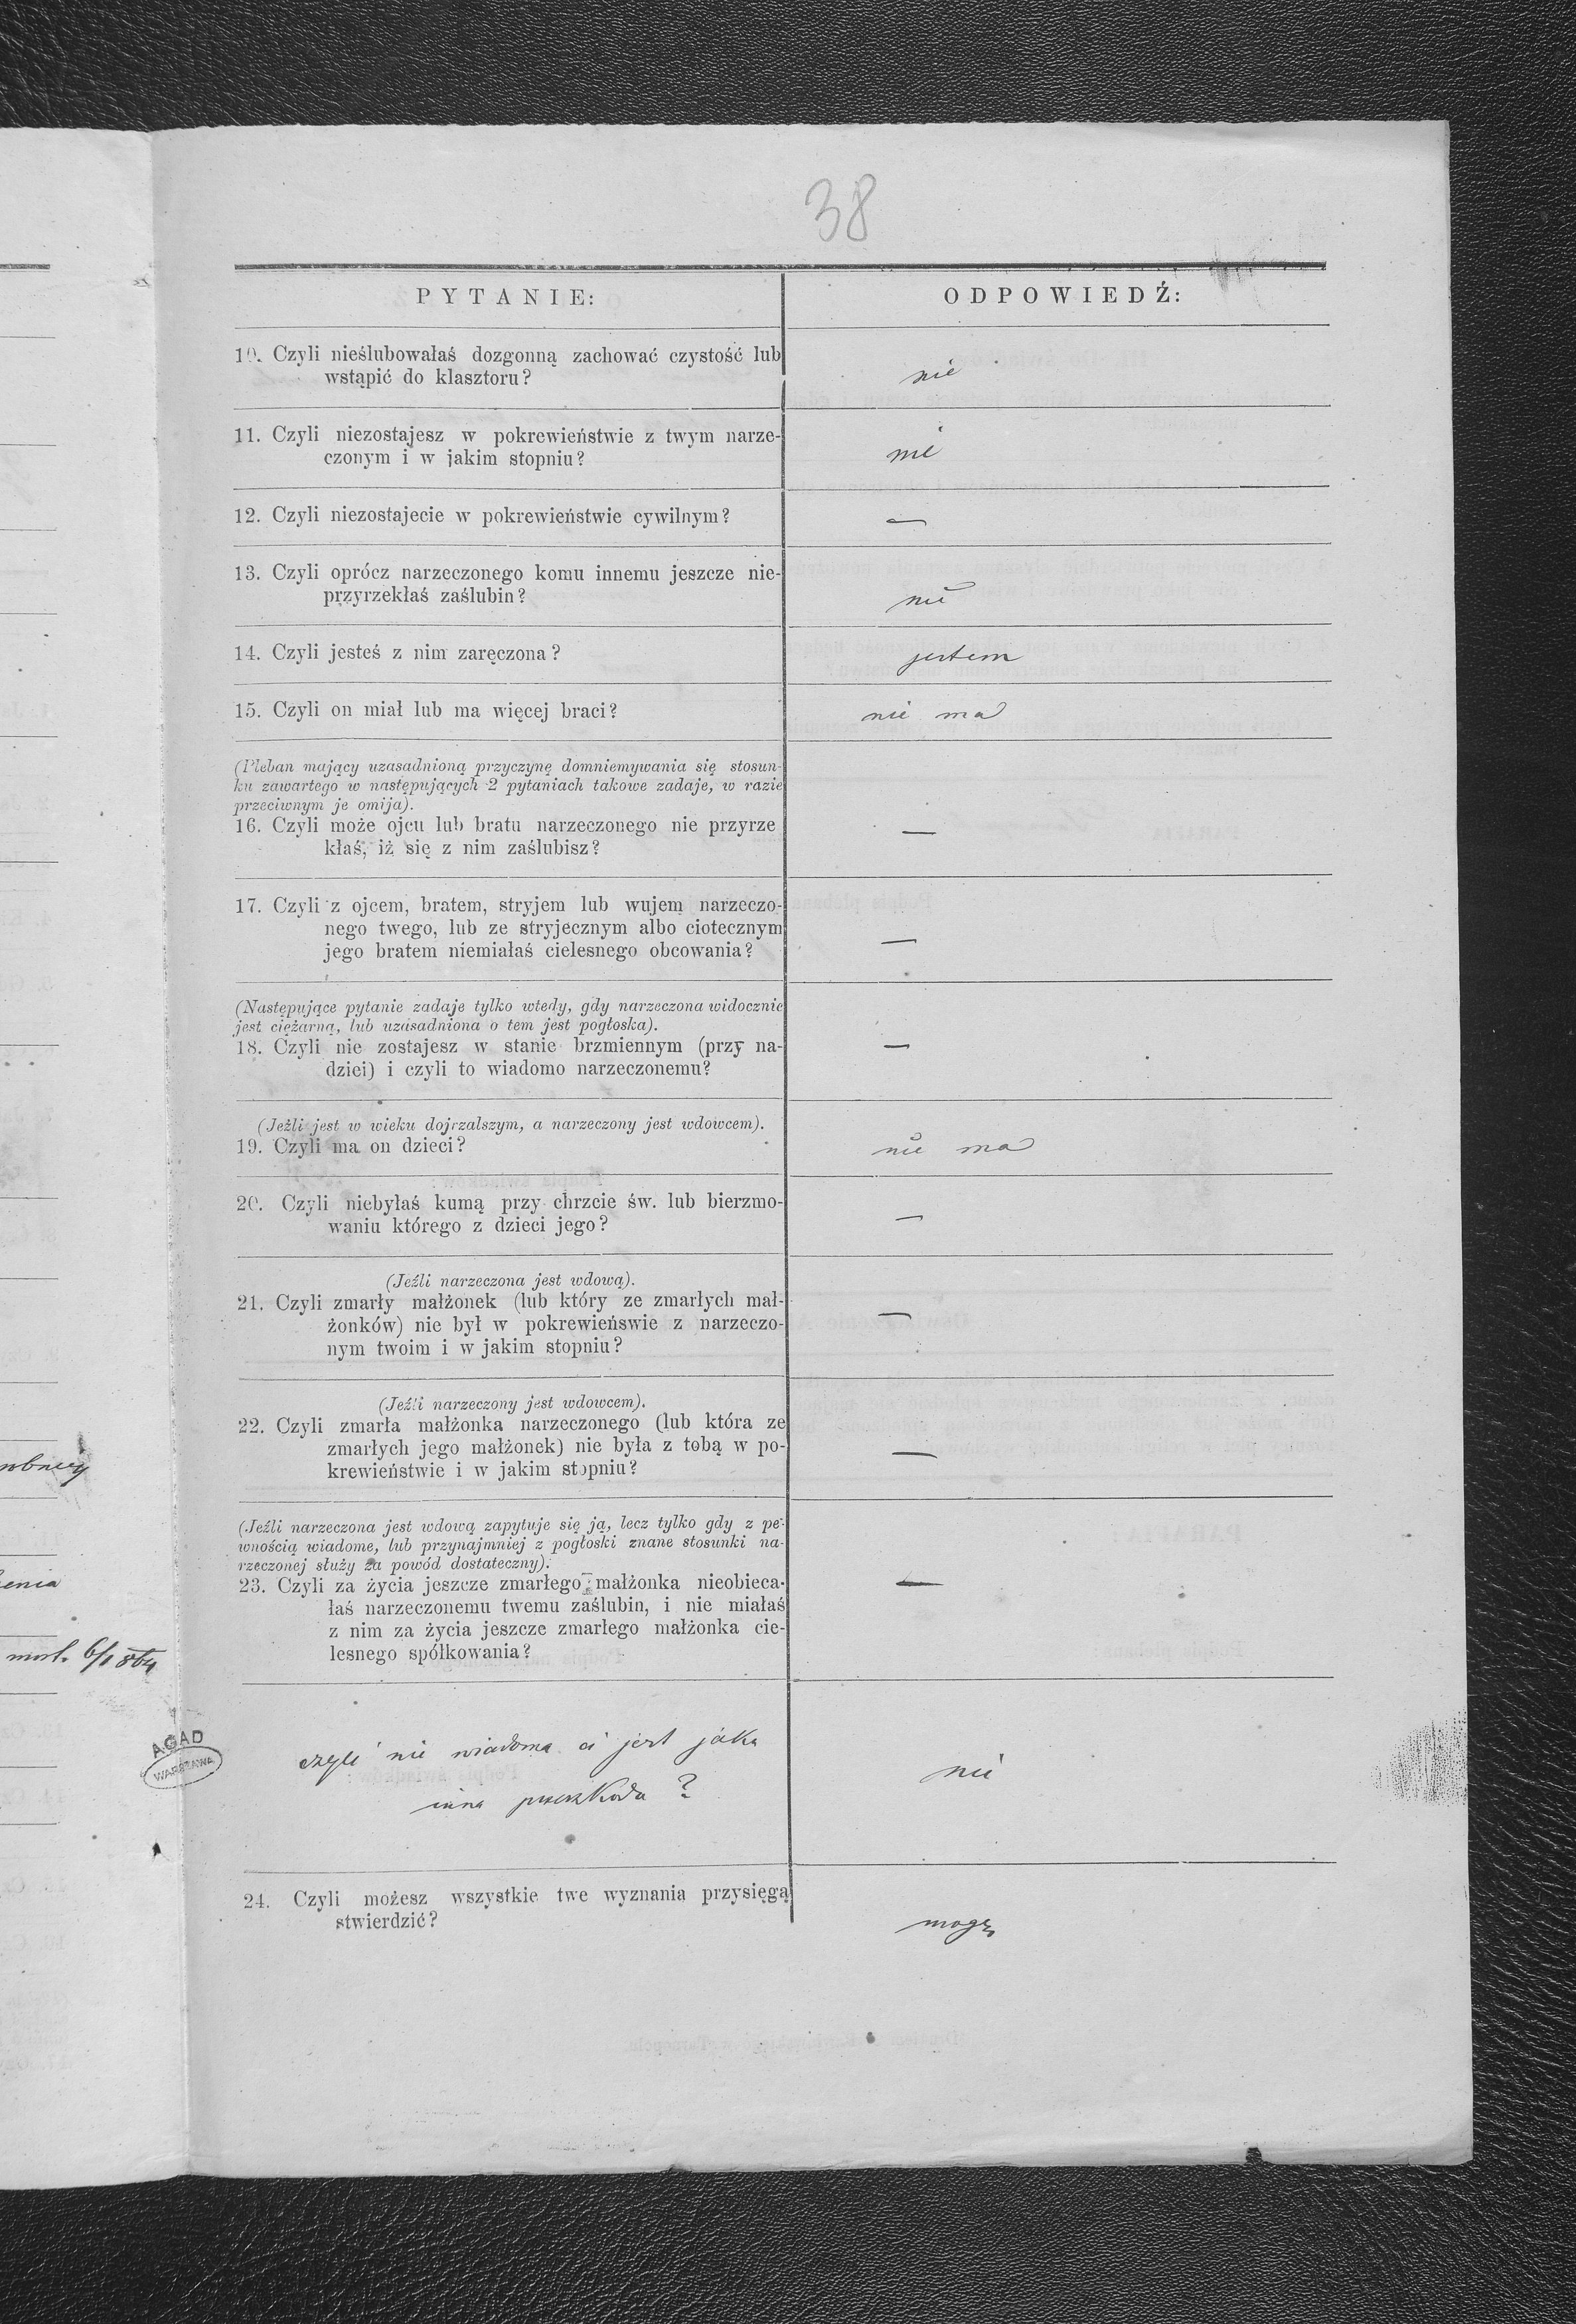 38
PYTANIE:
ODPOWIEDŹ:
10. Czyli nieślubowałaś dozgonną zachować czystość lub
wstąpić do klasztoru?
nie
11. Czyli niezostajesz w pokrewieństwie z twym narze-
czonym i w jakim stopniu?
nie
12. Czyli niezostajecie w pokrewieństwie cywilnym?
—
13. Czyli oprócz narzeczonego komu innemu jeszcze nie-
przyrzekłaś zaślubin?
nie
14. Czyli jesteś z nim zaręczona?
jestem
15. Czyli on miał lub ma więcej braci?
nie ma
(Pleban mający uzasadnioną przyczynę domniemywania się stosun-
ku zawartego w następujących 2 pytaniach takowe zadaje, w razie
przeciwnym je omija).
16. Czyli może ojcu lub bratu narzeczonego nie przyrze
kłaś, iż się z nim zaślubisz?
—
17. Czyli z ojcem, bratem, stryjem lub wujem narzeczo-
nego twego, lub ze stryjecznym albo ciotecznym
jego bratem niemiałaś cielesnego obcowania?
—
(Następujące pytanie zadaje tylko wtedy, gdy narzeczona widocznie
jest ciężarną, lub uzasadniona o tem jest pogłoska).
18. Czyli nie zostajesz w stanie brzmiennym (przy na-
dziei) i czyli to wiadomo narzeczonemu?
—
(Jeżli jest w wieku dojrzalszym, a narzeczony jest wdowcem).
19. Czyli ma on dzieci?
nie ma
20. Czyli niebyłaś kumą przy chrzcie św. lub bierzmo-
waniu którego z dzieci jego?
—
(Jeźli narzeczona jest wdową).
21. Czyli zmarły małżonek (lub który ze zmarłych mał-
żonków) nie był w pokrewieńswie z narzeczo-
nym twoim i w jakim stopniu?
—
(Jeźli narzeczony jest wdowcem).
22. Czyli zmarła małżonka narzeczonego (lub która ze
zmarłych jego małżonek) nie była z tobą w po-
krewieństwie i w jakim stopniu?
—
(Jeźli narzeczona jest wdową zapytuje się ją, lecz tylko gdy z pe-
wnością wiadome, lub przynajmniej z pogłoski znane stosunki na-
rzeczonej służy za powód dostateczny).
23. Czyli za życia jeszcze zmarłego małżonka nieobieca-
łaś narzeczonemu twemu zaślubin, i nie miałaś
z nim za życia jeszcze zmarłego małżonka cie-
lesnego spółkowania?
—
czyli nie wiadoma ci jest jaka
inna przeszkoda?
nie
24. Czyli możesz wszystkie twe wyznania przysięgą
stwierdzić?
mogę
AGAD
WARSZAWA